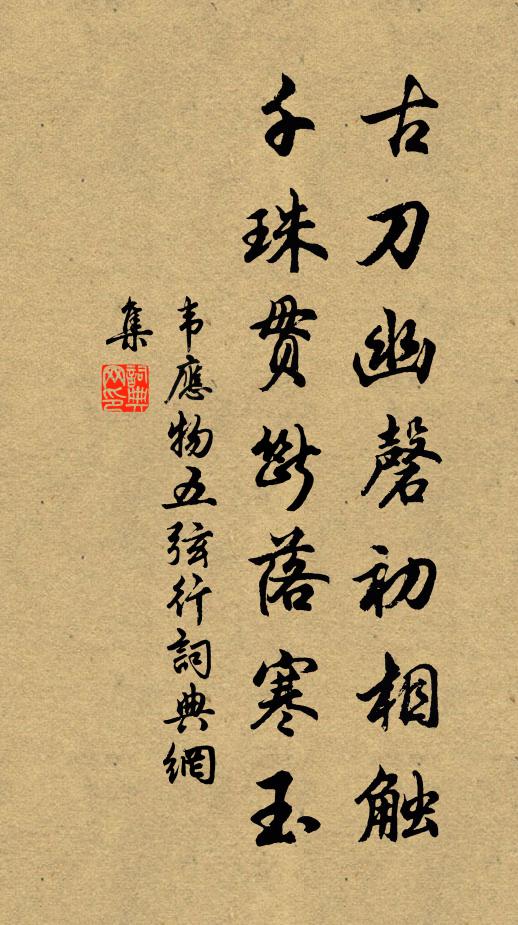 古刀幽磬初相触
千珠贯断落寒玉
韦應物五弦行詞典網
集
詞典
网印